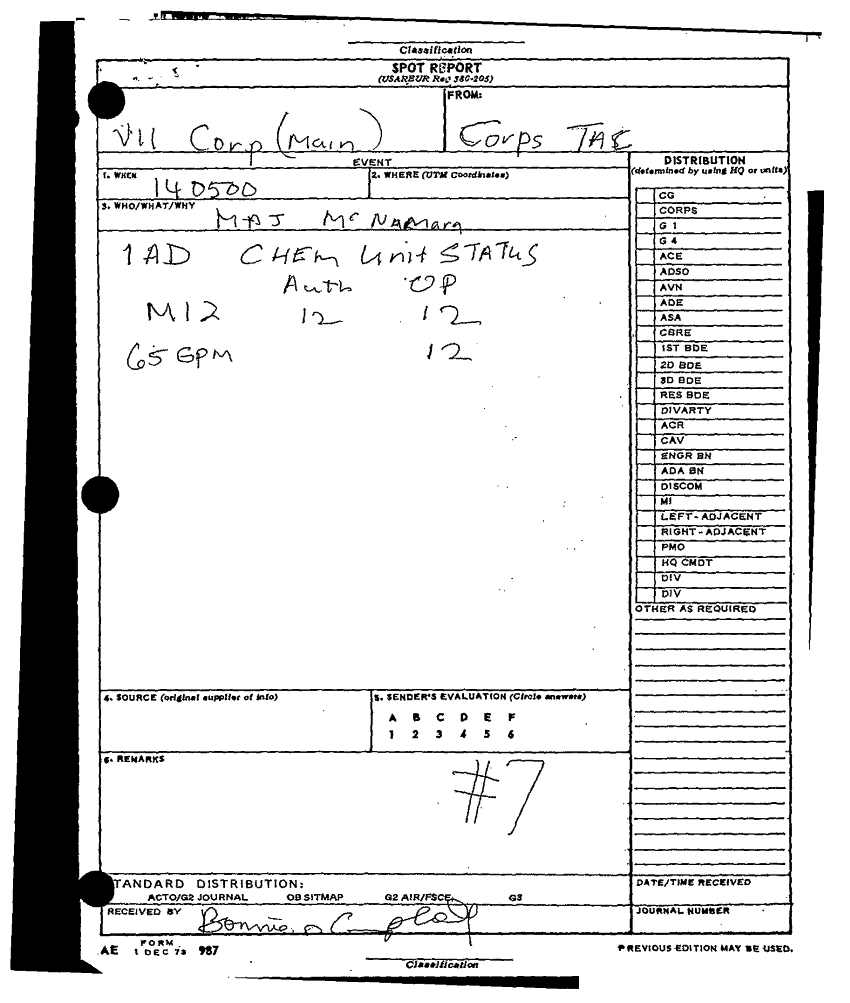 Classification
SPOT REPORT
(USAREUR Reg 380-205)
FROM:
VII Corp (Main)
Corps TAC
EVENT
1. WHEN
140500
2. WHERE (UTM Coordinates)
3. WHO/WHAT/WHY
MAJ McNamara
1AD CHEM Unit STATUS
Auth OP
M12 12 12
65 GPM 12
DISTRIBUTION
(determined by using HQ or units)
CG
CORPS
G 1
G 4
ACE
ADSO
AVN
ADE
ASA
CBRE
1ST BDE
2D BDE
3D BDE
RES BDE
DIVARTY
ACR
CAV
ENGR BN
ADA BN
DISCOM
MI
LEFT-ADJACENT
RIGHT-ADJACENT
PMO
HQ CMDT
DIV
DIV
OTHER AS REQUIRED
4. SOURCE (original supplier of info)
5. SENDER'S EVALUATION (Circle answers)
A B C D E F
1 2 3 4 5 6
6. REMARKS
#7
STANDARD DISTRIBUTION:
ACTO/G2 JOURNAL OB SITMAP G2 AIR/FSCE G3
RECEIVED BY
Bonnie
DATE/TIME RECEIVED
JOURNAL NUMBER
AE FORM 1 DEC 73 987
PREVIOUS EDITION MAY BE USED.
Classification